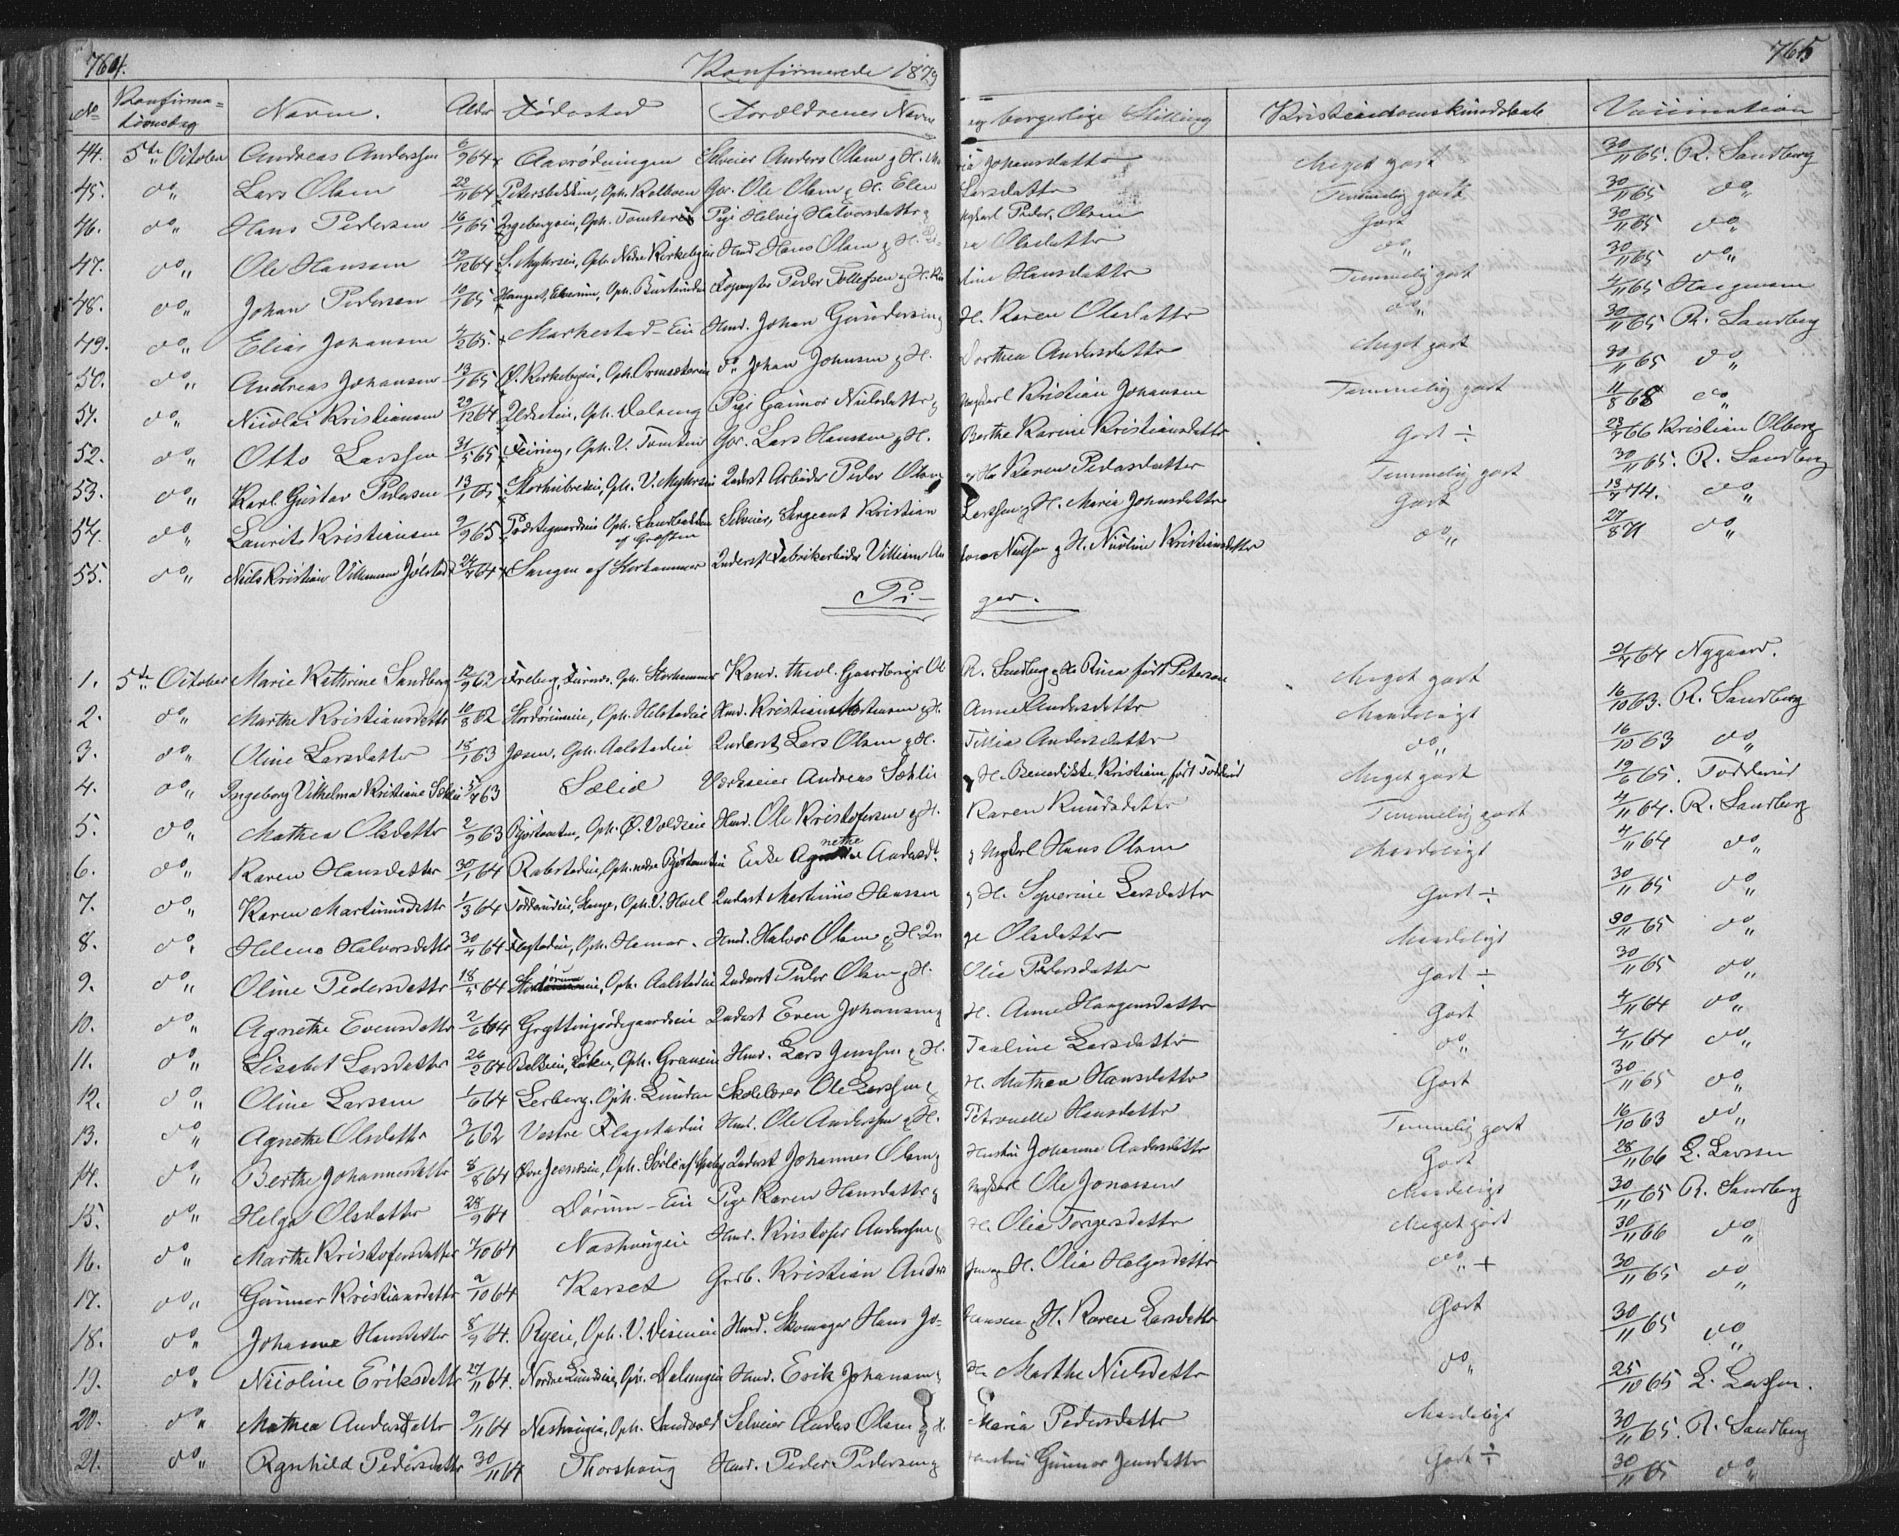 764. Konfirmerede 1879 765
No Konfirma= Navn. Alder Fødested Forældrenes Navn og borgerlige Stilling Kristendomskundskab Vaccination
tionsdag
44. 5te October Andreas Anderssen 6/9 64 Aasrødningen Selveier Anders Olsen & H. Johansdatter Meget godt 30/11 65. R. Sandberg
45. do Lars Olsen 28/11 64 Petersbakken, Oph. Kolboen Gbr. Ole Olsen & H. Elen Larsdatter Temmelig godt 30/11 65 do
46. do Hans Pedersen 16/1 65 Ingebergeie, Oph. Pige Helvig Halvorsdatter & Ungkarl Peder Olsen Godt 30/11 65 do
47. do Ole Hansen 12/12 64 S. Myhrseie, Oph. Nedre Kirkebyeie Hmd. Hans Olsen & H. Olsdatter do 30/11 65 do
48. do Johan Pedersen 10/1 65 Elverum, Oph. Peder Tollefsen & H. Hansdatter Temmelig godt 4/11 65 Haagensen
49. do Elias Johansen 2/2 65. Markestad-Eie Hmd. Johan Gundersen & H. Karen Olsdatter do 30/11 65 R. Sandberg
50. do Andreas Johansen 13/1 65 Ø. Kirkebyeie, Oph. Ormsætereie do Johan Johnsen & H. Dorthea Andersdatter Meget godt 30/11 65 do
51. do Nicolai Kristiansen 29/12 64 Oph. Dalseng Pige Gunnor Nielsdatter & Ungkarl Kristian Johansen Temmelig godt 11/8 68 do
52. do Otto Larssen 31/5 65 Feiring, Oph. V. Tomteeie Gbr. Lars Hanssen & H. Berthe Karine Kristiansdatter Godt ÷ 28/9 66 Kristian Olberg
53. do Karl Gustav Pedersen 13/1 65 Storhuebreeie, Oph. V. Myhrseie Inderst Arbeider Peder Olsen & H. Karen Pedersdatter Temmelig godt 30/11 65. R. Sandberg
54. do Laurits Kristiansen 9/9 65 Præstegaardseie Oph. Sandbakken Selveier, Sergeant Kristian Larssen & H. Maria Johnsdatter Godt 13/7 74. do
55. do Niels Kristian Villumsen Jølstad 24/7 64 Sangen af Storhammer Inderst Fabrikarbeider Villum Nielsen & H. Nicoline Kristiansdatter do 27/8 71 do
Pi- ger.
1. 5te October Marie Kathrine Sandberg 12/9 62 Freberg, Furnes, Oph. Storhammer Kand. theol. Gaardbruger Ol R. Sandberg & H. Rikka født Petersen Meget godt 21/7 64 Nygaard.
2. do Marthe Kristiansdatter 10/8 62 Stordørumeie, Oph. Helstadeie Hmd. Kristian Mortensen & H. Anne Andersdatter Maadeligt 16/10 63. R. Sandberg
3. do Oline Larsdatter 18/1 63 Josen, Oph. Aalstadeie Inderst Lars Olsen & H. Tillia Andersdatter do 16/10 63 do
4. do Ingeborg Vilhelma Kristiane Sælid 5/7 63 Sælid Værkseier Andreas Sælid & H. Benedikte Kristiane født Todderud Meget godt 19/6 65. Todderud
5. do Mathea Olsdatter 2/9 63 Bjørtomten, Oph. Ø. Voldseie Hmd. Ole Kristofersen & H. Karen Knudsdatter Temmelig godt 4/11 64. R. Sandberg
6. do Karen Hansdatter 30/1 64 Rabstadeie, Oph. nedre Bjørtomten Enke Agnethe Andersdt. & Ungkarl Hans Olsen Maadeligt 4/11 64 do
7. do Karen Martinusdatter 1/3 64 Todderudeie, Stange, Oph. V. Hoel Inderst Martinus Hanssen & H. Syverine Larsdatter Godt ÷ 30/11 65 do
8. do Helene Halvorsdatter 30/4 64 Flagstadeie, Oph. Hamar. Hmd. Halvor Olsen & H. In ge Olsdatter Maadeligt 30/11 65 do
9. do Oline Pedersdatter 18/5 64 Stordørumeie, Oph. Aalstadeie Inderst Peder Olsen & H. Olia Pedersdatter Godt ÷ 30/11 65 do
10. do Agnethe Evensdatter 2/6 64 Gryttingsødegaardseie Inderst Even Johansen & H. Anne Haagensdatter Godt 4/11 64 do
11. do Lisabet Larsdatter 26/2 64 Balkeie, Løten, Oph. Granseie Hmd. Lars Jenssen & H. Pauline Larsdatter do 4/11 64 do
12. do Oline Larsen 1/6 64 Lerberg, Oph. Lunden Skolelærer Ole Larssen & H. Mathea Hansdatter Godt 30/11 65 do
13. do Agnethe Olsdatter 3/6 62 Vestre Flagstadeie Hmd. Ole Anderssen & H. Petronelle Hansdatter Temmelig godt 16/10 63 do
14. do Berthe Johannesdatter 8/8 64 Øvre Jeensdeie, Oph. Sørli af Inderst Johannes Olsen & Hustru Johanne Andersdatter Godt 28/11 66 L. Larssen
15. do Helga Olsdatter 28/9 64 Dørum-Eie Pige Karen Hansdatter & Ungkarl Ole Jonassen Maadeligt 30/11 65 R. Sandberg
16. do Marthe Kristofersdatter 7/10 64 Nashougeie Hmd. Kristofer Anderssen & H. Olia Torgersdatter Meget godt 30/11 66 do
17. do Gunnor Kristiansdatter 9/10 64 Karset Grdb. Kristian Anders sen & H. Olia Helgesdatter do + 30/11 65 do
18. do Johanne Hansdatter 8/9 64. Ryeie, Oph. V. Diseneie Hmd. Skomager Hans Jo- hansen & H. Karen Larsdatter Godt 30/11 65 do
19. do Nicoline Eriksdatter 27/11 64. Nordre Lundseie, Oph. Dalsengeie Hmd. Erik Johansen & H. Marthe Nielsdatter do 25/10 65 L. Larssen.
20. do Mathea Andersdatter 9/11 64 Nashougeie, Oph. Sandvold Selveier Anders Olsen & H. Maria Pedersdatter Maadeligt 30/11 65. R. Sandberg
21. do Ragnhild Pedersdatter 30/11 64 Thorshoug Hmd. Peder Pedersen & Hustru Gunnor Jensdatter Godt ÷ 30/11 65 do